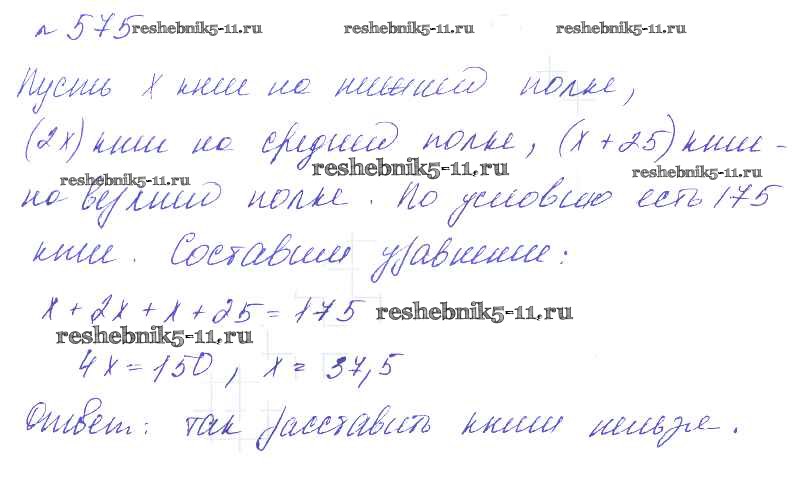 № 575 reshebnik5-11.ru reshebnik5-11.ru reshebnik5-11.ru
Пусть x книг на нижней полке,
(2x) книг на средней полке, (x + 25) книг -
reshebnik5-11.ru reshebnik5-11.ru reshebnik5-11.ru
на верхней полке. По условию есть 175
книг. Составим уравнение:
x + 2x + x + 25 = 175 reshebnik5-11.ru
reshebnik5-11.ru
4x = 150, x = 37,5
Ответ: так расставить книги нельзя.